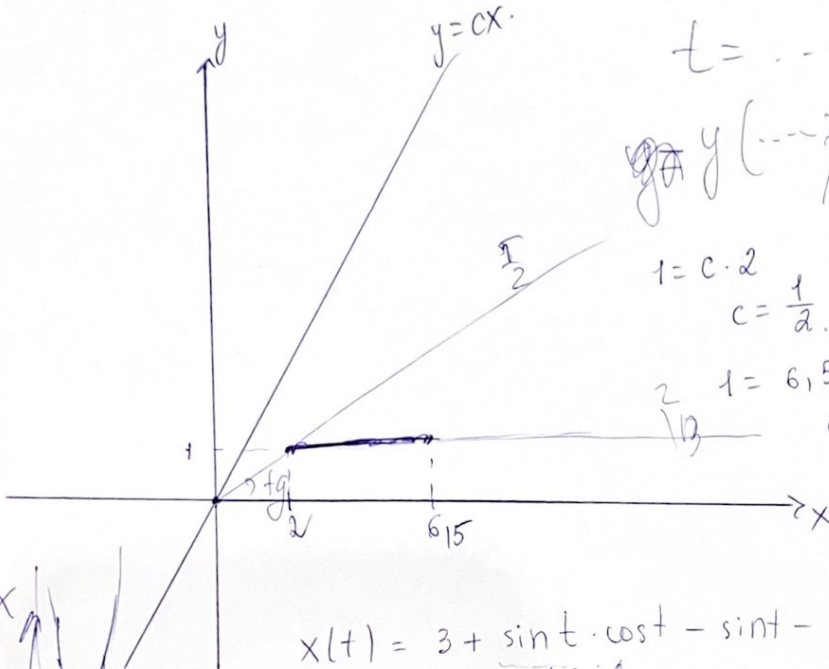 y
y = cx.
t = ..
y (....
π/2
1 = c · 2
c = 1/2.
1 = 6,5
2
13
1
tg
2
6,5
x
x
x(t) = 3 + sin t · cos t - sin t -